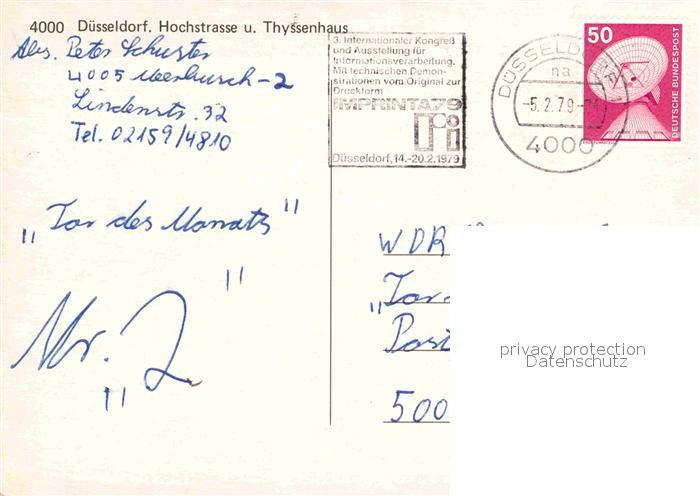 4000 Düsseldorf. Hochstrasse u. Thyssenhaus
Abs. Peter Schuster
4005 Meerbusch-2
Lindenstr. 32
Tel. 02159/4810
3. Internationaler Kongreß
und Ausstellung für
Informationsverarbeitung.
Mit technischen Demon-
strationen vom Original zur
Druckform
IMPRINTA79
Düsseldorf, 14.-20.2.1979
DÜSSELDORF
na
-5.2.79-
4000
50
DEUTSCHE BUNDESPOST
„Tor des Monats"
„Nr. 2"
WDR
„Tor
Post
500
privacy protection
Datenschutz